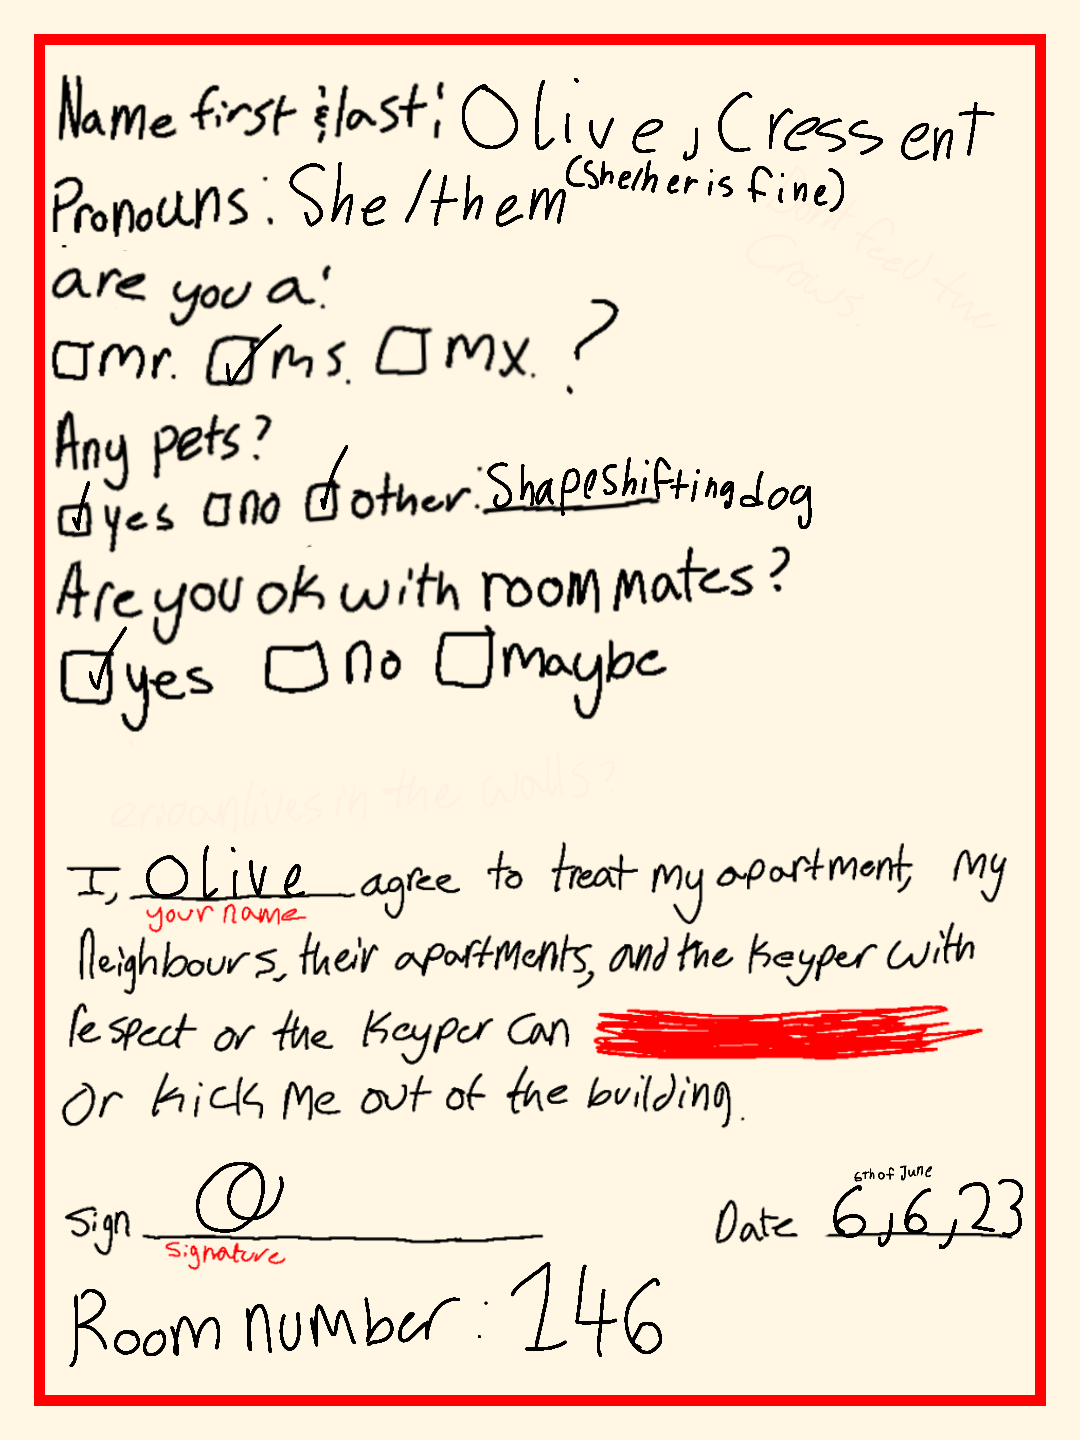 Name first & last: Olive, Cressent
Pronouns: She/them (She/her is fine)
Dont feed the
Crows.
are you a:
mr. ms. mx. ?
Any pets?
yes no other: Shapeshifting dog
Are you ok with roommates?
yes no maybe
lives in the walls?
I, Olive agree to treat my apartment, my
your name
Neighbours, their apartments, and the Keyper with
respect or the Keyper can
Or kick me out of the building.
Sign
signature
Date 6,6,23
6th of June
Room number: 146